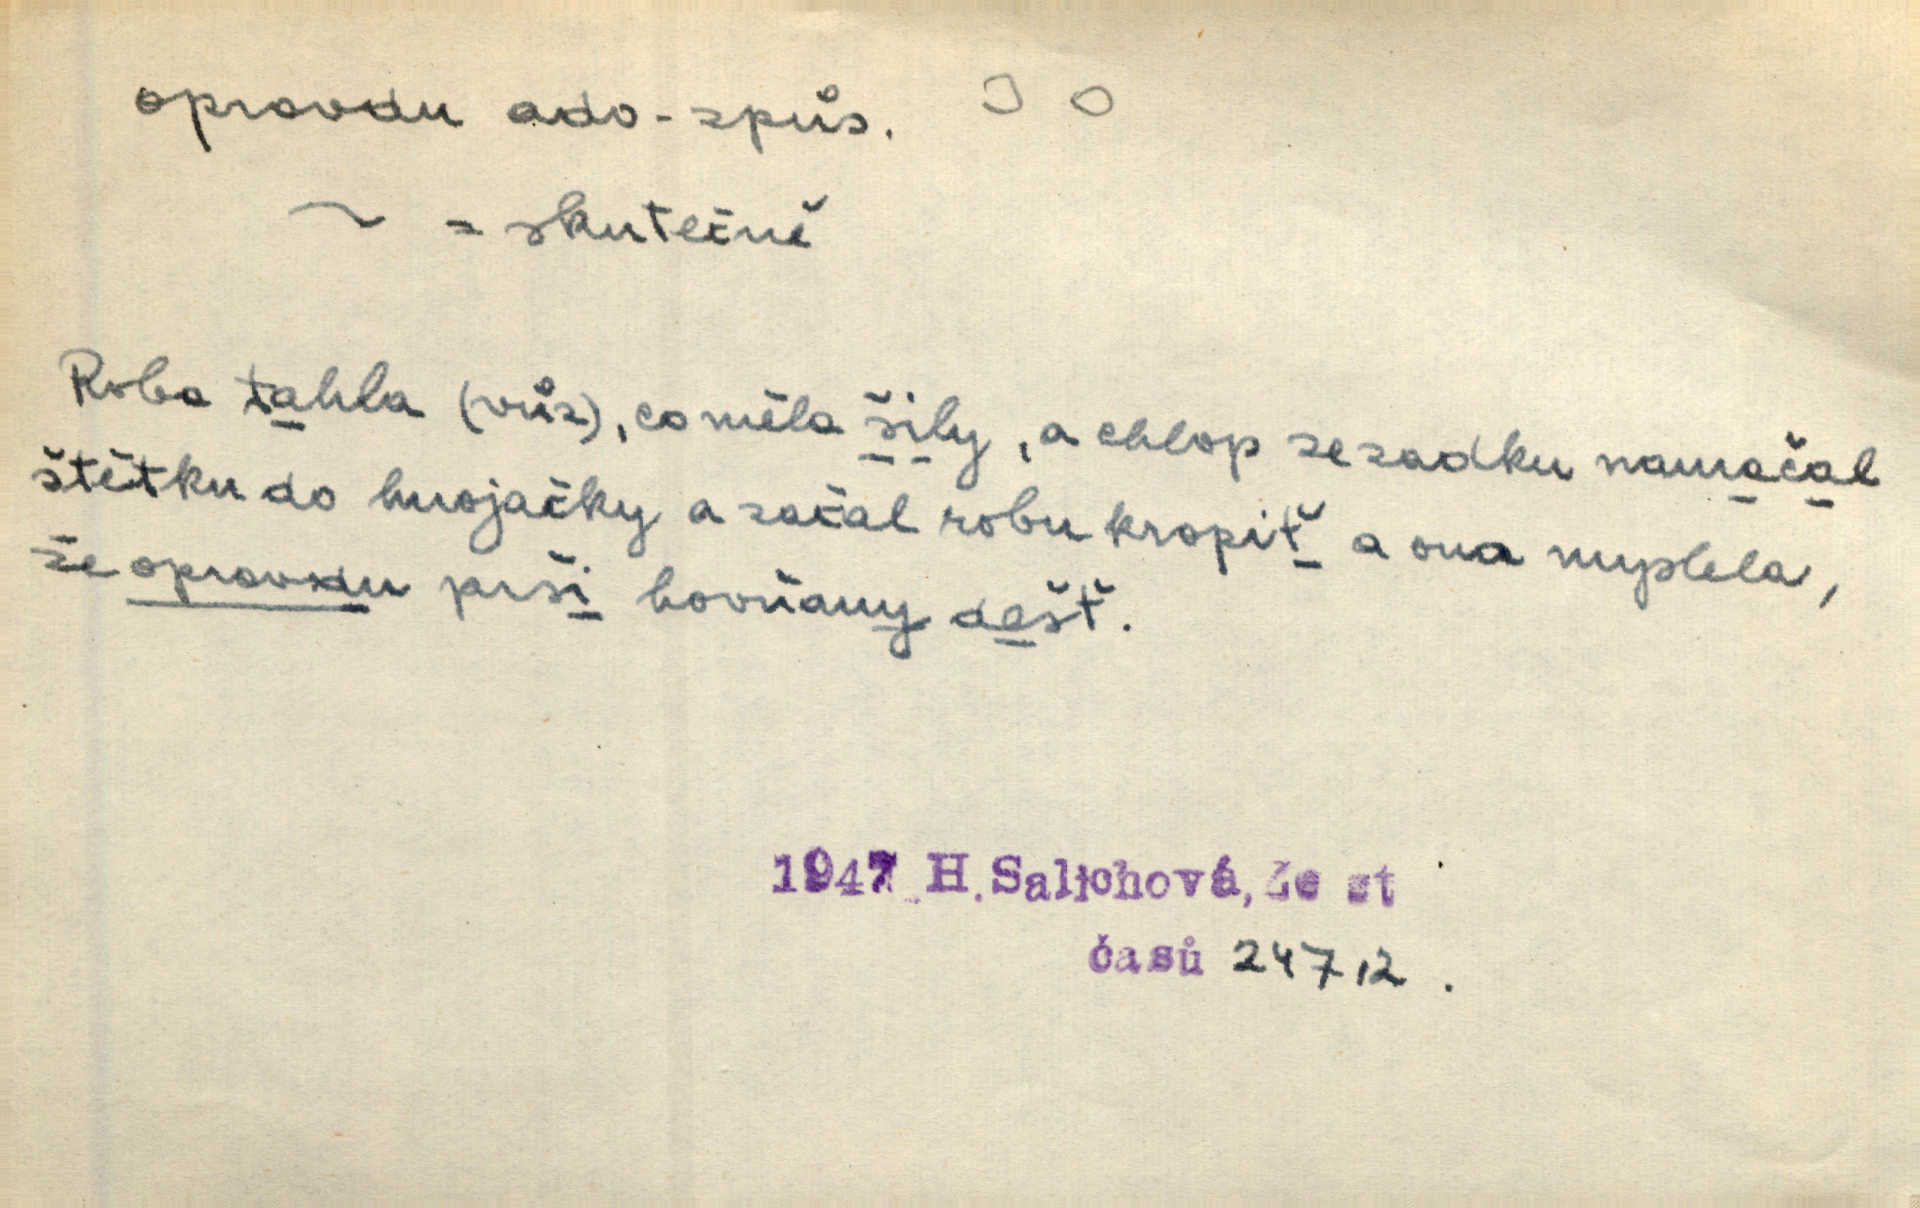 opravdu adv-způs.
~ = skutečně
Roba tahla (vůz), co měla šily, a chlop zezadku namačal
štětku do hnojačky a začal robu kropiť a ona myslela,
že opravdu prši hovňany dešť.
1947 H. Salichová, Ze st
časů 247,2.